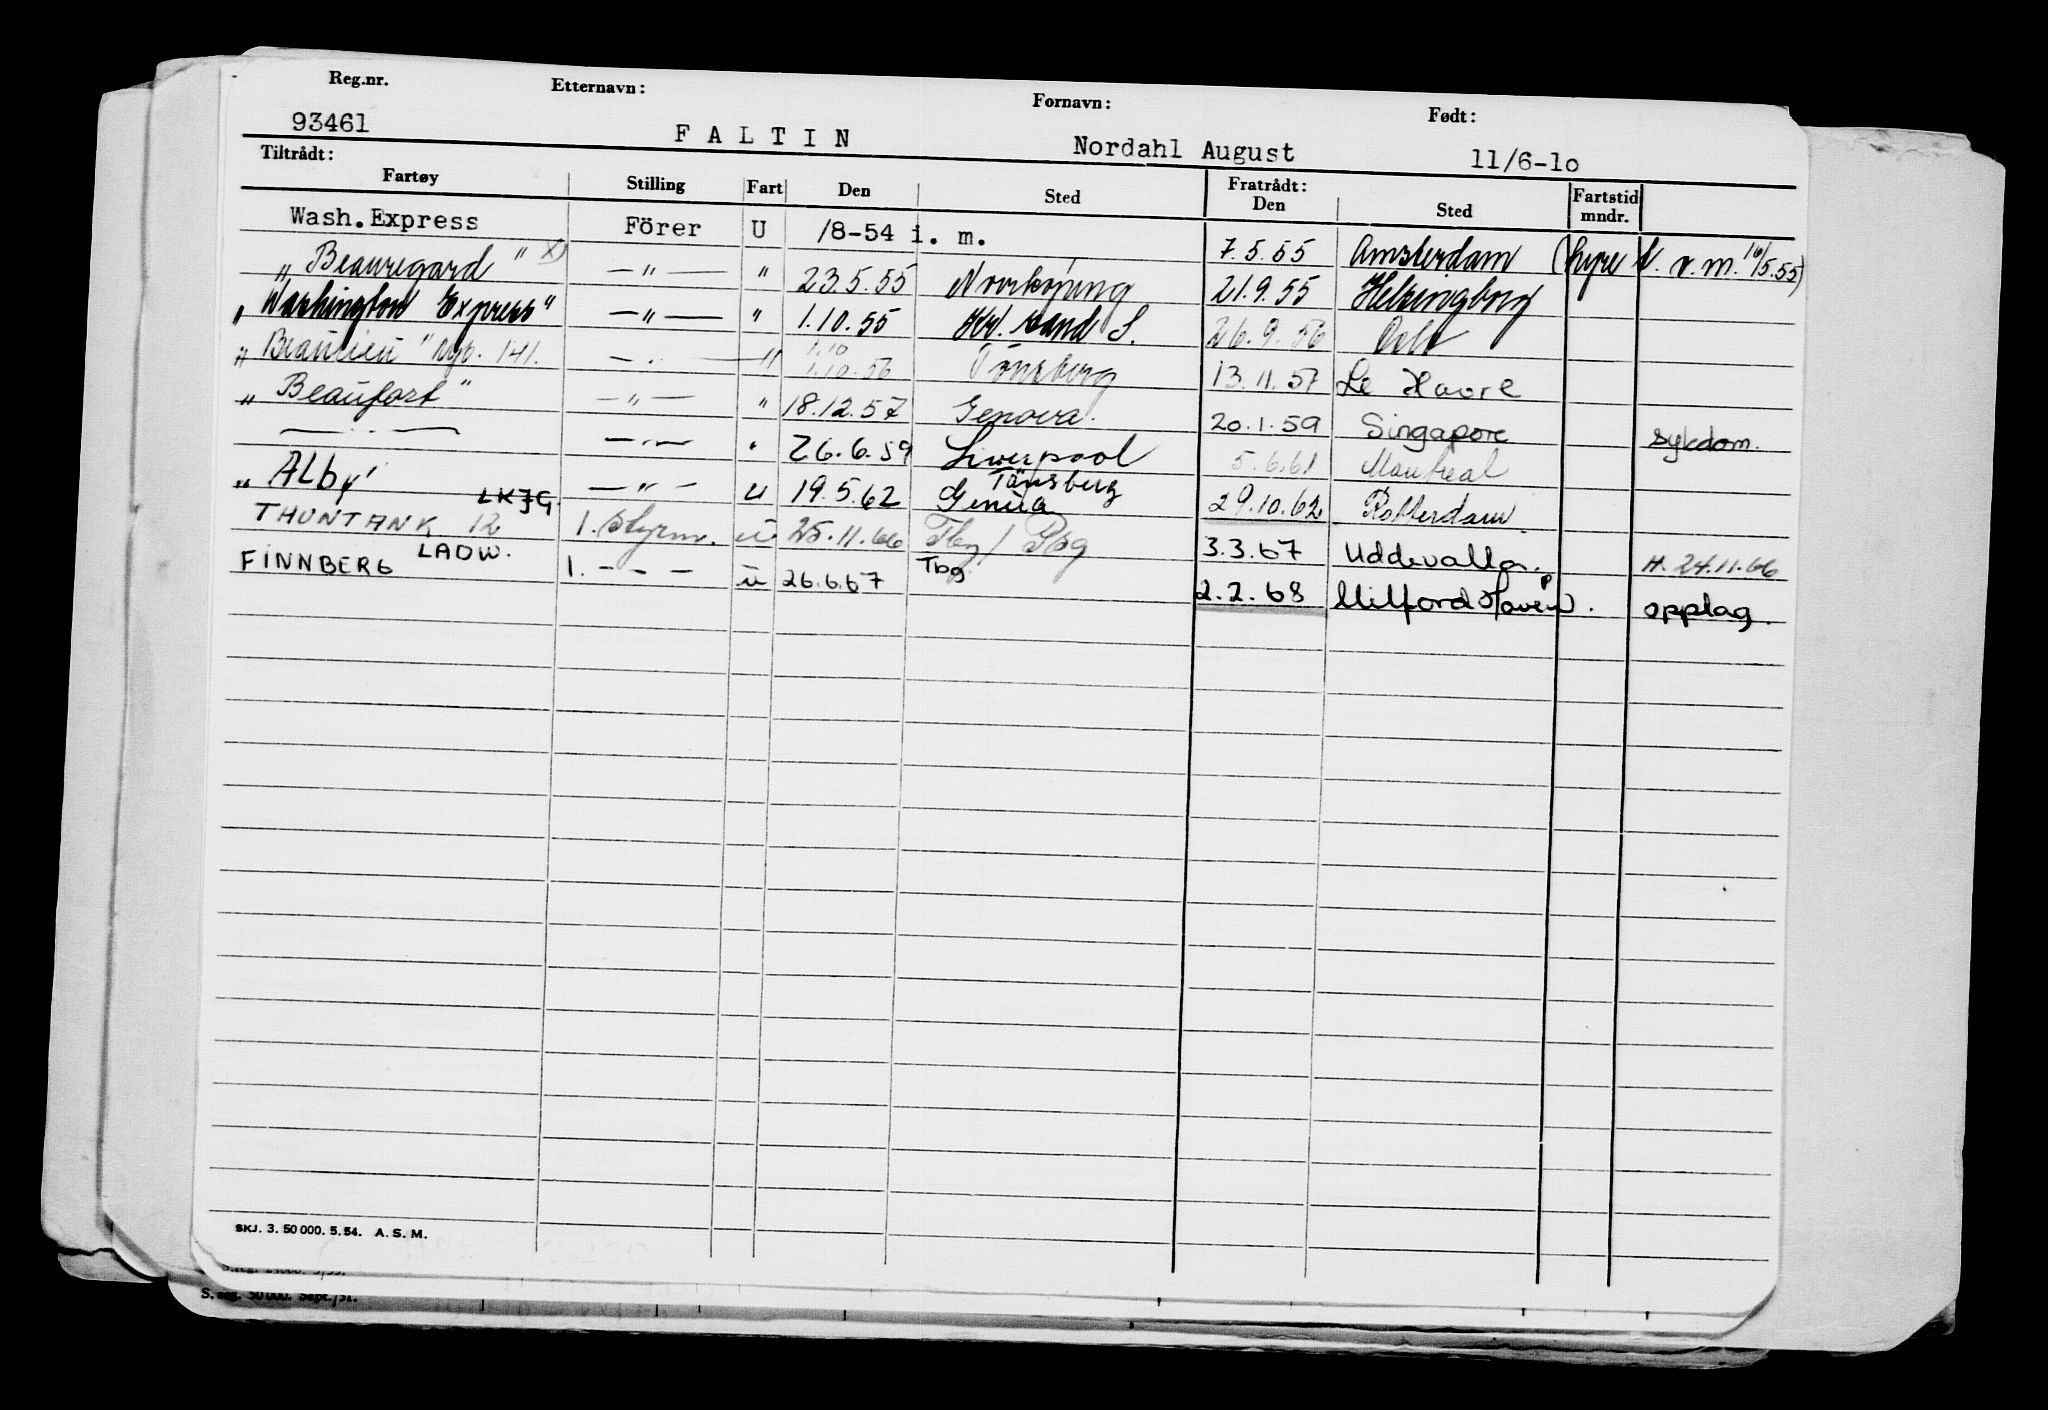 Reg.nr. Etternavn: Fornavn: Født:
93461 F A L T I N Nordahl August 11/6-1o
Tiltrådt: Fratrådt:
Fartøy Stilling Fart Den Sted Den Sted Fartstid mndr.
Wash. Express Förer U /8-54 i. m. 7.5.55 Amsterdam (hyre t. v. m. 16/5.55)
"Beauregard" x) —"— " 23.5.55 Norrköping 21.9.55 Helsingborg
"Washington Express" —"— " 1.10.55 Kr. sand S. 26.9.56 Oslo
"Beaulieu" nyb. 141. —"— " 1.10 1.10.56 Tönsberg 13.11.57 Le Havre
"Beaufort" —"— " 18.12.57 Genova. 20.1.59 Singapore sykdom.
—"— —"— " 26.6.59 Liverpool 5.6.61 Montreal
"ALby" —"— u 19.5.62 Genua Tönsberg 29.10.62 Rotterdam
THUNTANK 12 LKJG. 1. styrm. u 25.11.66 Tbg / Pbg 3.3.67 Uddevalla. H. 24.11.66
FINNBERG LADW. 1. — — — u 26.6.67 Tbg 2.2.68 Milford Haven. opplag.
SKJ. 3. 50 000. 5. 54. A. S. M.
S. reg. 50 000. Sept./51.